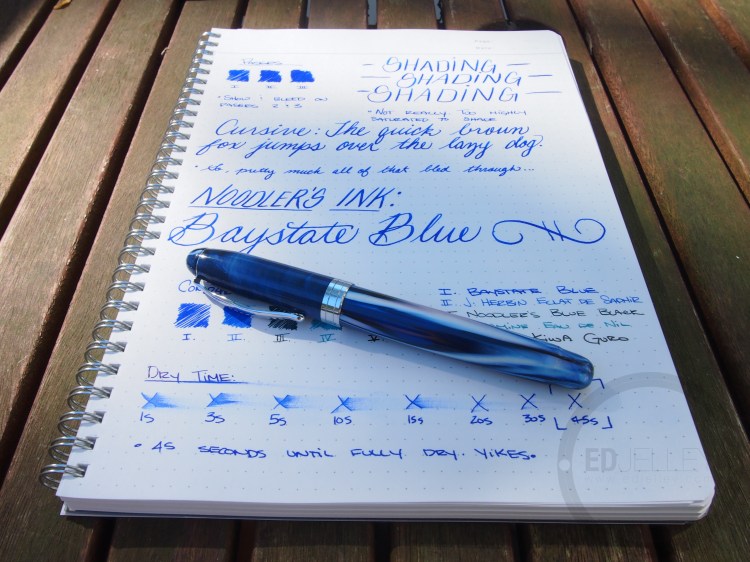 PASSES
– SHADING –
– SHADING –
– SHADING –
I. II. III.
• SHOW & BLEED ON
PASSES 2 & 3
• NOT REALLY. TOO HIGHLY
SATURATED TO SHADE
Cursive: The quick brown
fox jumps over the lazy dog.
pretty much all of that bled through...
NOODLER'S INK:
Baystate Blue
I. BAYSTATE BLUE
II. J. HERBIN ECLAT DE SAPHIR
NOODLER'S BLUE BLACK
EAU DE NIL
KIWA GURO
I. II. III. IV.
DRY TIME:
1s 3s 5s 10s 15s 20s 30s 45s
• 45 SECONDS UNTIL FULLY DRY. YIKES.
EDJELLE